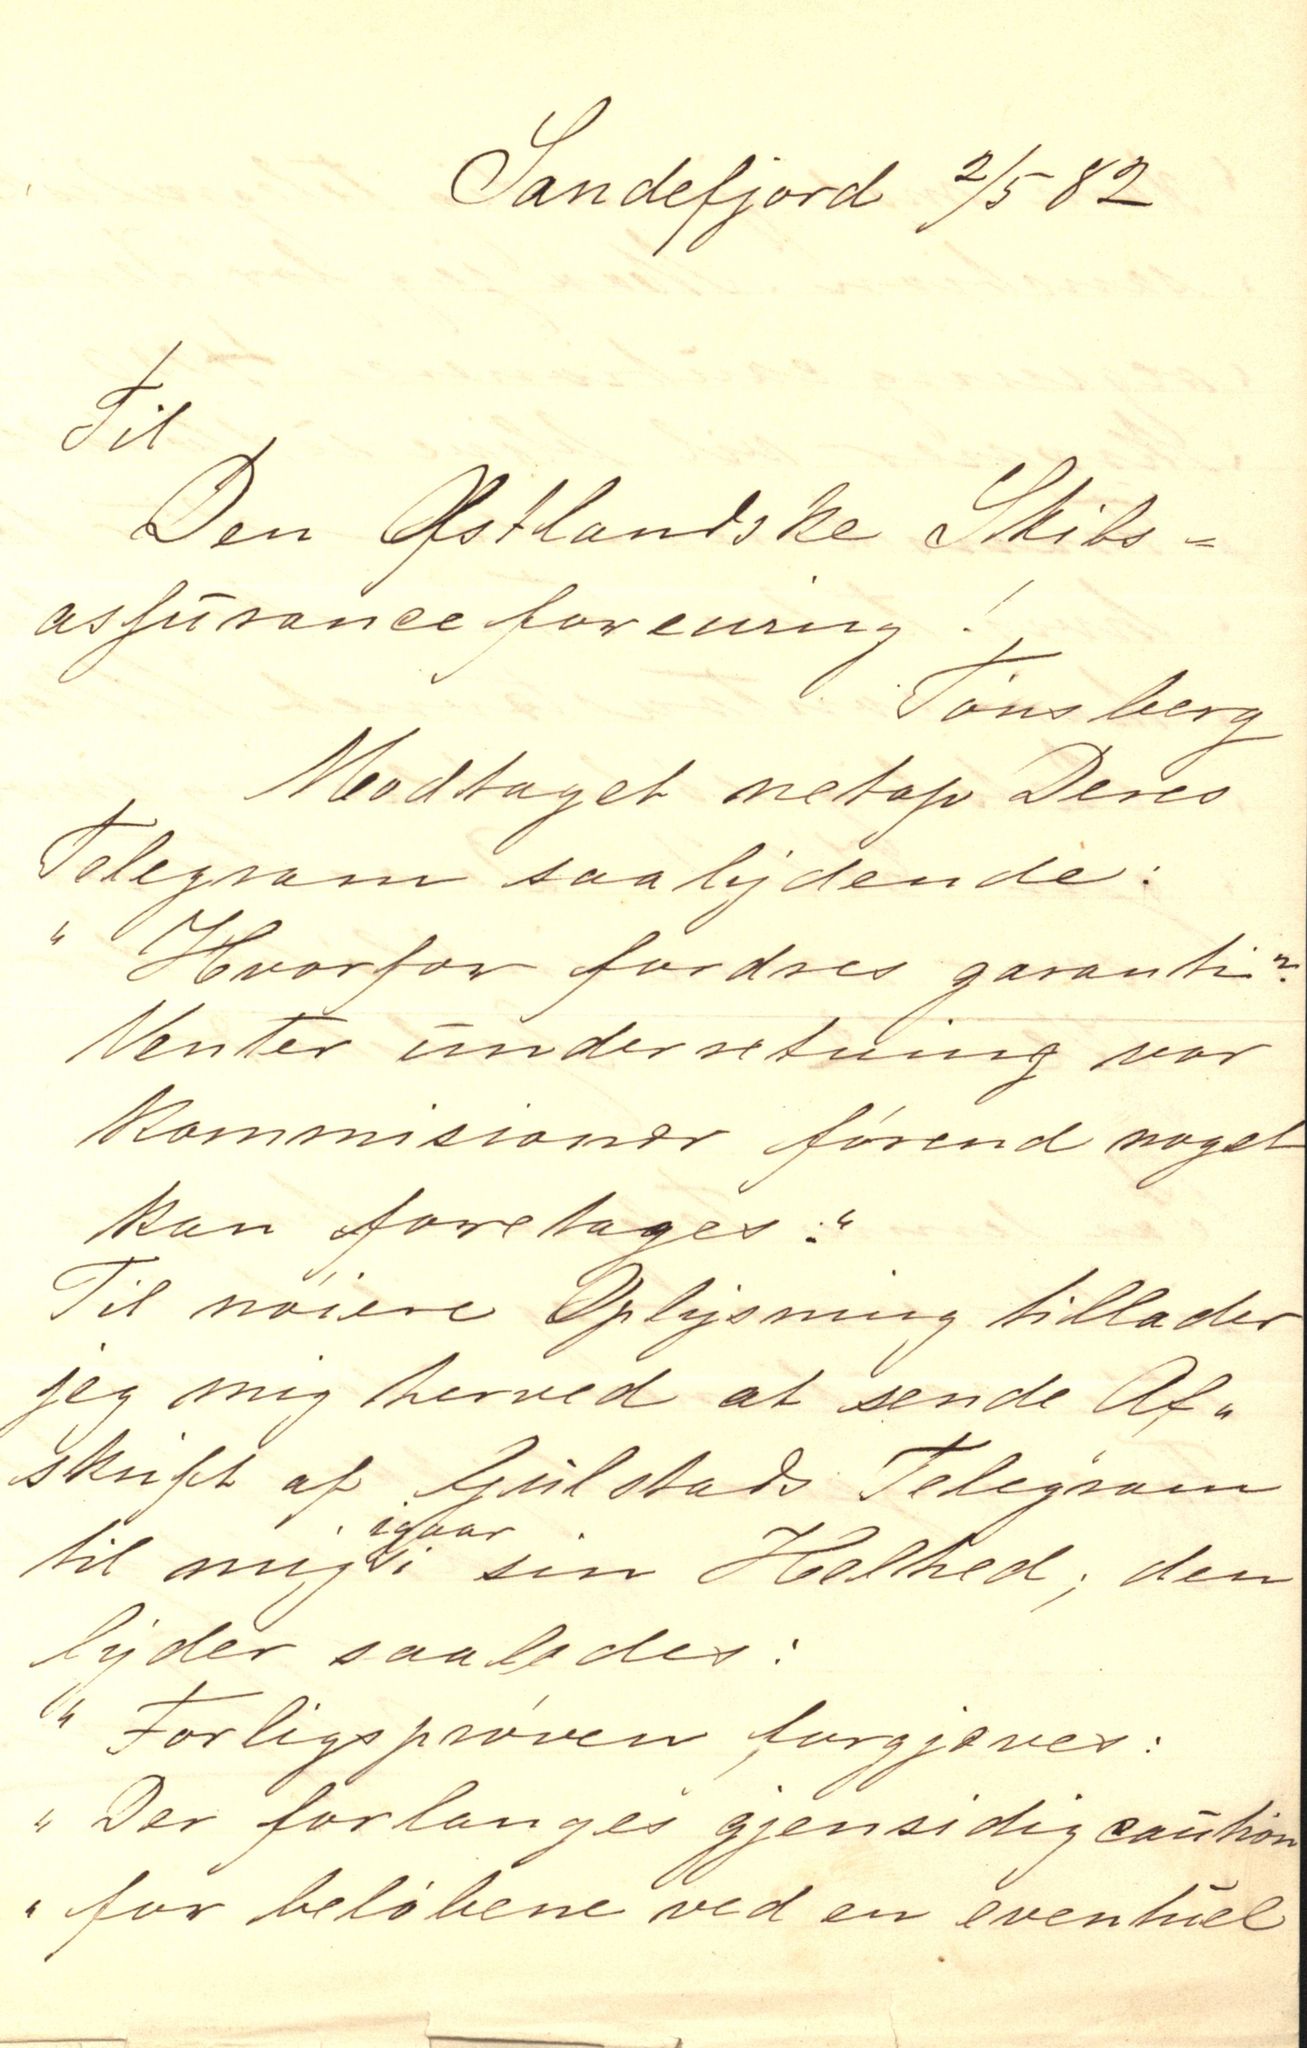 Sandefjord 2/5 82
Til
Den Østlandske Skibs=
assuranceforening!
Tönsberg
Modtaget netop Deres
Telegram saalydende:
"Hvorfor fordres garanti?
Venter underretning vor
kommisionær förend noget
kan foretages."
Til nöiere Oplysning tillader
jeg mig herved at sende Af=
skrift af Gulstads Telegram
til mig igaar i sin Helhed; den
lyder saaledes:
"Forligspröven forgjæves:
"Der forlanges gjensidig caution
"for belöbene ved en eventuel